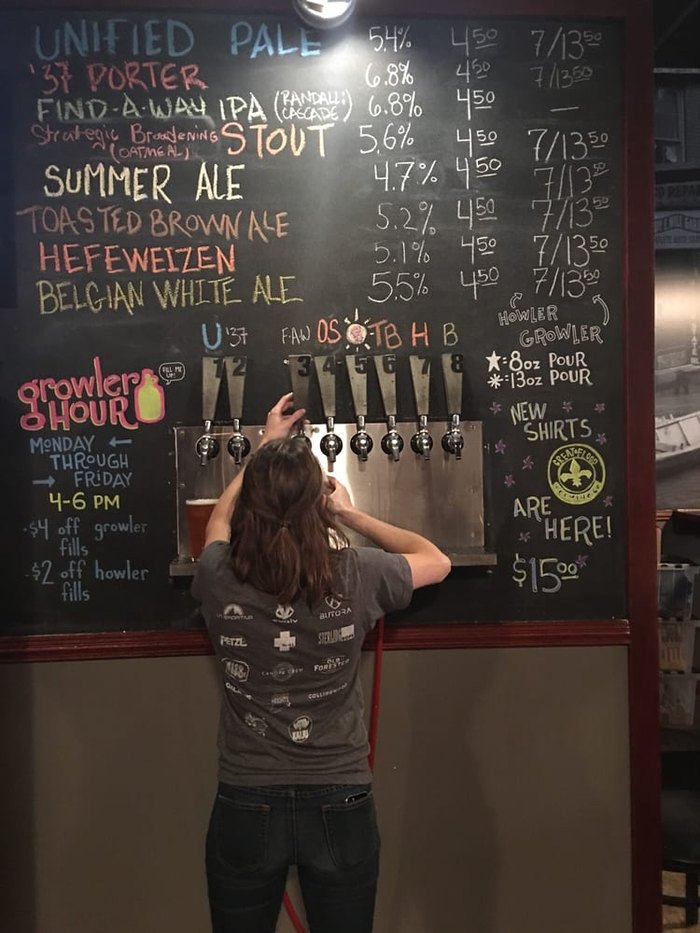 UNIFIED PALE 5.4% 4⁵⁰ 7/13⁵⁰
'37 PORTER 6.8% 4⁵⁰ 7/13⁵⁰
FIND-A-WAY IPA (RANDALL: CASCADE) 6.8% 4⁵⁰ —
Strategic Broadening (OATMEAL) STOUT 5.6% 4⁵⁰ 7/13⁵⁰
SUMMER ALE 4.7% 4⁵⁰ 7/13⁵⁰
TOASTED BROWN ALE 5.2% 4⁵⁰ 7/13⁵⁰
HEFEWEIZEN 5.1% 4⁵⁰ 7/13⁵⁰
BELGIAN WHITE ALE 5.5% 4⁵⁰ 7/13⁵⁰
HOWLER
GROWLER
U '37 F-A-W OS TB H B
1 2 3 4 5 6 7 8
★=8oz POUR
*=13oz POUR
growler
HOUR
FILL ME UP!
MONDAY
THROUGH
FRIDAY
4-6 PM
-$4 off growler
fills
-$2 off howler
fills
NEW
SHIRTS
GREAT FLOOD
ARE
HERE!
$15⁰⁰
LA SPORTIVA
BUTORA
PETZL
STERLING
OLD FORESTER